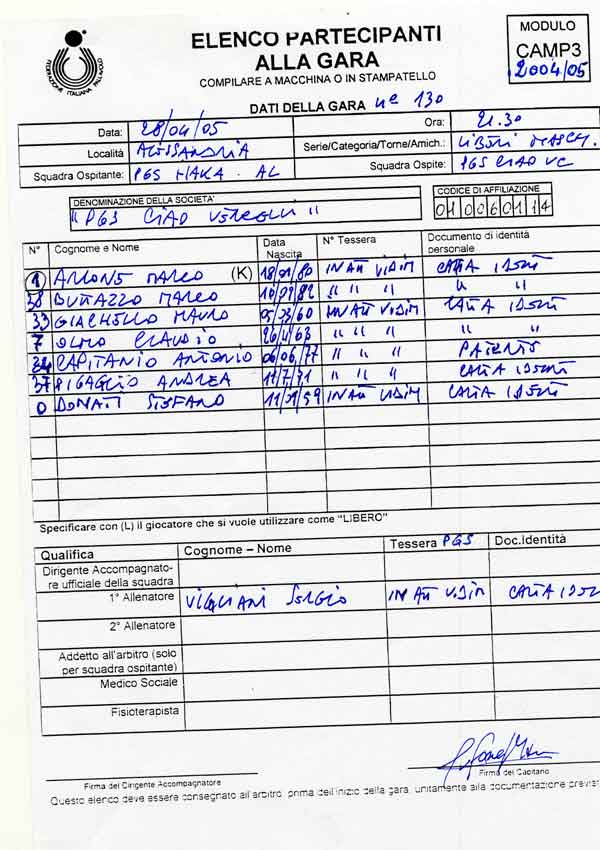 FEDERAZIONE ITALIANA PALLAVOLO
ELENCO PARTECIPANTI
ALLA GARA
COMPILARE A MACCHINA O IN STAMPATELLO
MODULO
CAMP3
2004/05
DATI DELLA GARA n° 130
Data: 28/04/05 Ora: 21.30
Località ALESSANDRIA Serie/Categoria/Torne/Amich.: LIBERI MASCH.
Squadra Ospitante: PGS MAKA - AL Squadra Ospite: PGS CIAO VC
DENOMINAZIONE DELLA SOCIETA' CODICE DI AFFILIAZIONE
"PGS CIAO VERCELLI"
N° Cognome e Nome Data Nascita N° Tessera Documento di identità personale
(K) 18/01/80 IN ATT VIDIM CARTA IDENT
38 BUTTAZZO MARCO " " " " "
33 GIACHELLO MAURO IN ATT VIDIM CARTA IDENT
7 CLAUDIO 26/4/63 " " " " "
CAPITANIO ANTONIO 06/06/77 " " " PATENTE
37 ANDREA 11/7/71 " " " CARTA IDENT
0 DONATI STEFANO 11/01/59 IN ATT VIDIM CARTA IDENT
Specificare con (L) il giocatore che si vuole utilizzare come "LIBERO"
Qualifica Cognome – Nome Tessera PGS Doc.Identità
Dirigente Accompagnato-
re ufficiale della squadra
1° Allenatore VIGLIANI SERGIO IN ATT VIDIM CARTA IDENT
2° Allenatore
Addetto all'arbitro (solo
per squadra ospitante)
Medico Sociale
Fisioterapista
Firma del Dirigente Accompagnatore Firma del Capitano
Questo elenco deve essere consegnato all'arbitro, prima dell'inizio della gara, unitamente alla documentazione previs